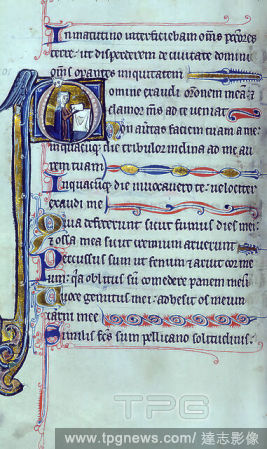 In matutino interficiebam om̄s pctores
terre: ut disperderem de civitate domini
om̄s operantes iniquitatem
Domine exaudi orōnem meā: ⁊
clamor m̄s ad te veniat
Non avertas faciem tuam a me:
in quacūq; die tribulor inclina ad me au
rem tuam
In quacūq; die invocavero te: velociter
exaudi me
Quia defecerunt sicut fumus dies mei:
⁊ ossa mea sicut cremium aruerunt
Percussus sum ut fenum ⁊ aruit cor me
um: q̄a oblitus sū comedere panem meū
A voce gemitus mei: adhesit os meum
carni mee
Similis fc̄s sum pellicano solitudinis:
TPG
www.tpgnews.com / 達志影像